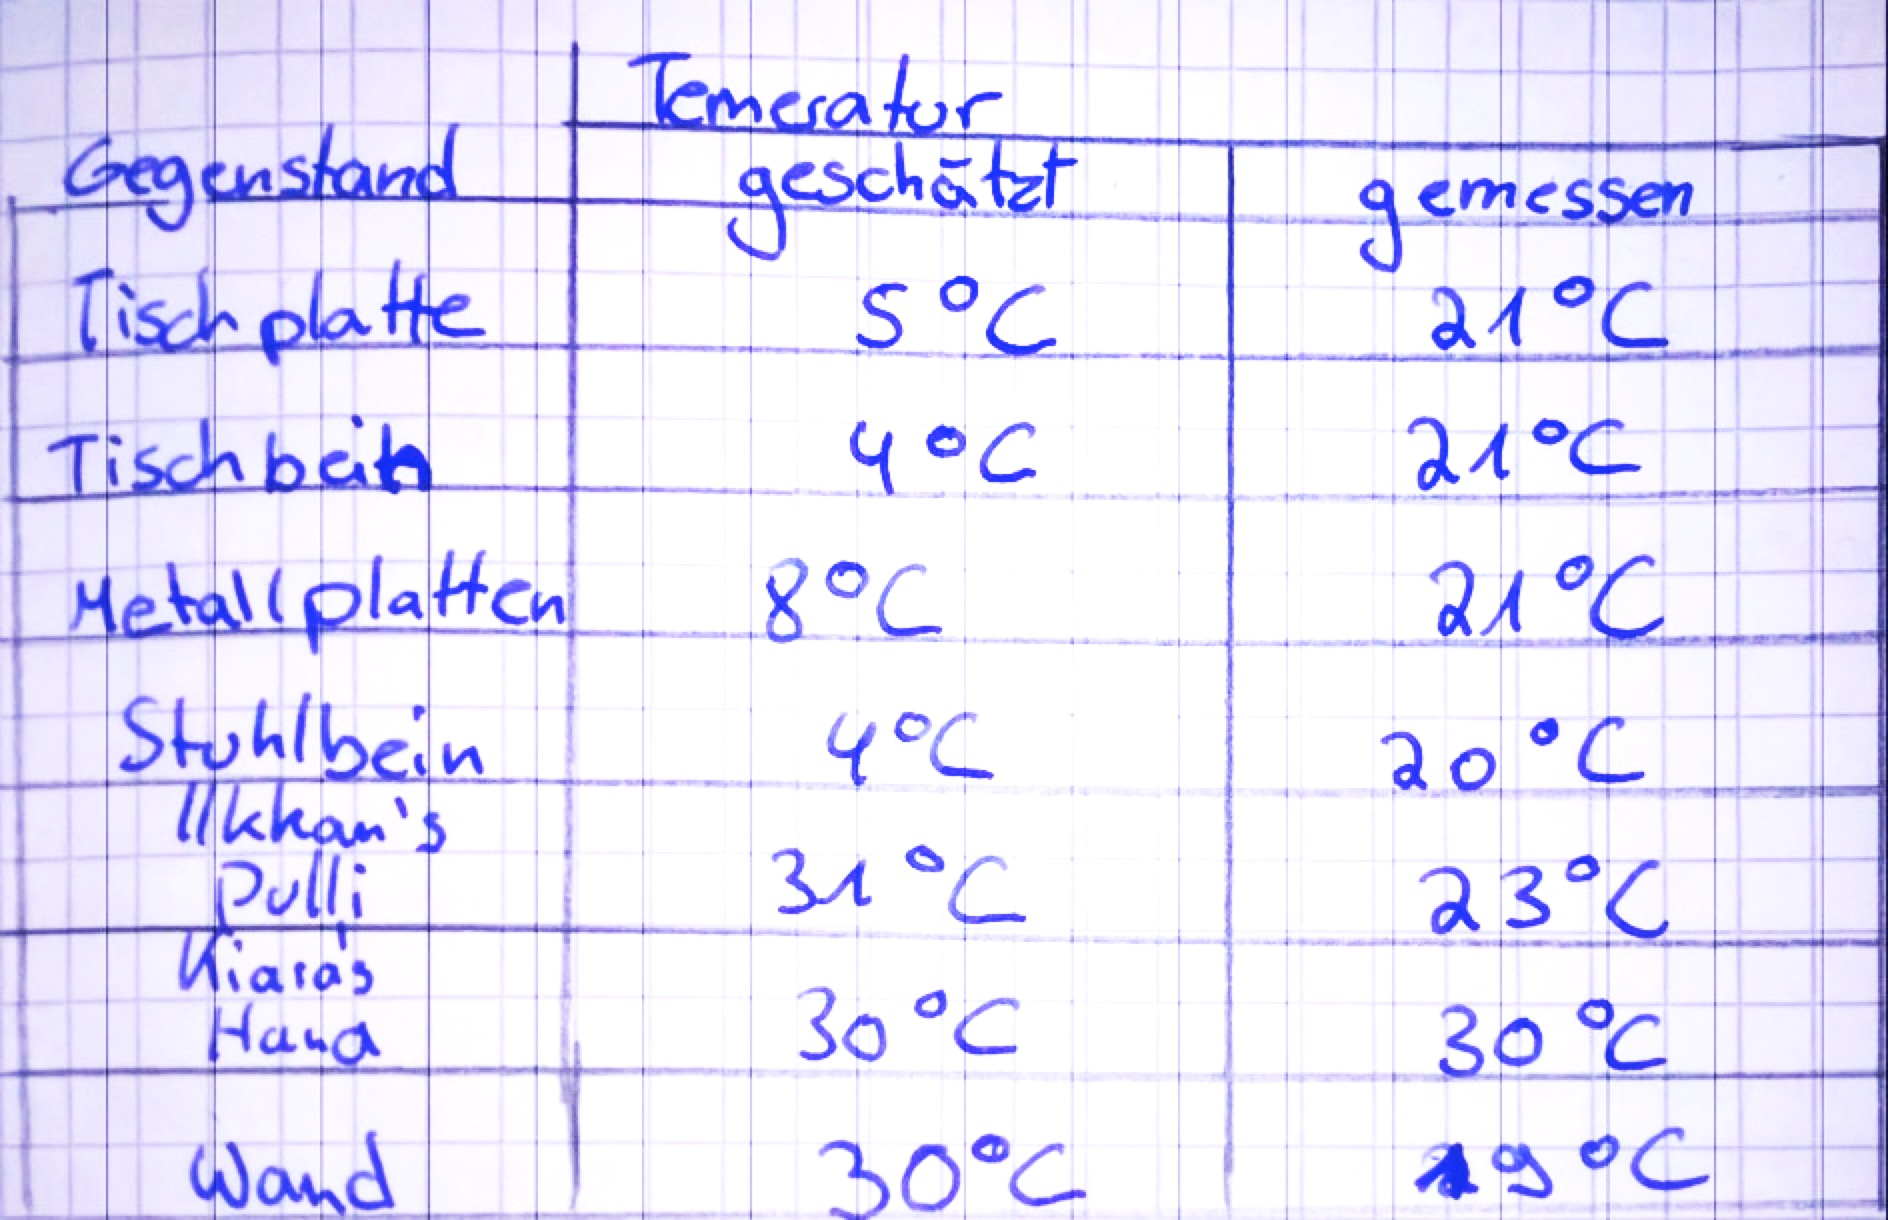 Temeratur
Gegenstand geschätzt gemessen
Tischplatte 5°C 21°C
Tischbein 4°C 21°C
Metallplatten 8°C 21°C
Stuhlbein 4°C 20°C
Ilkkan's
Pulli 31°C 23°C
Kiara's
Hand 30°C 30°C
Wand 30°C 19°C